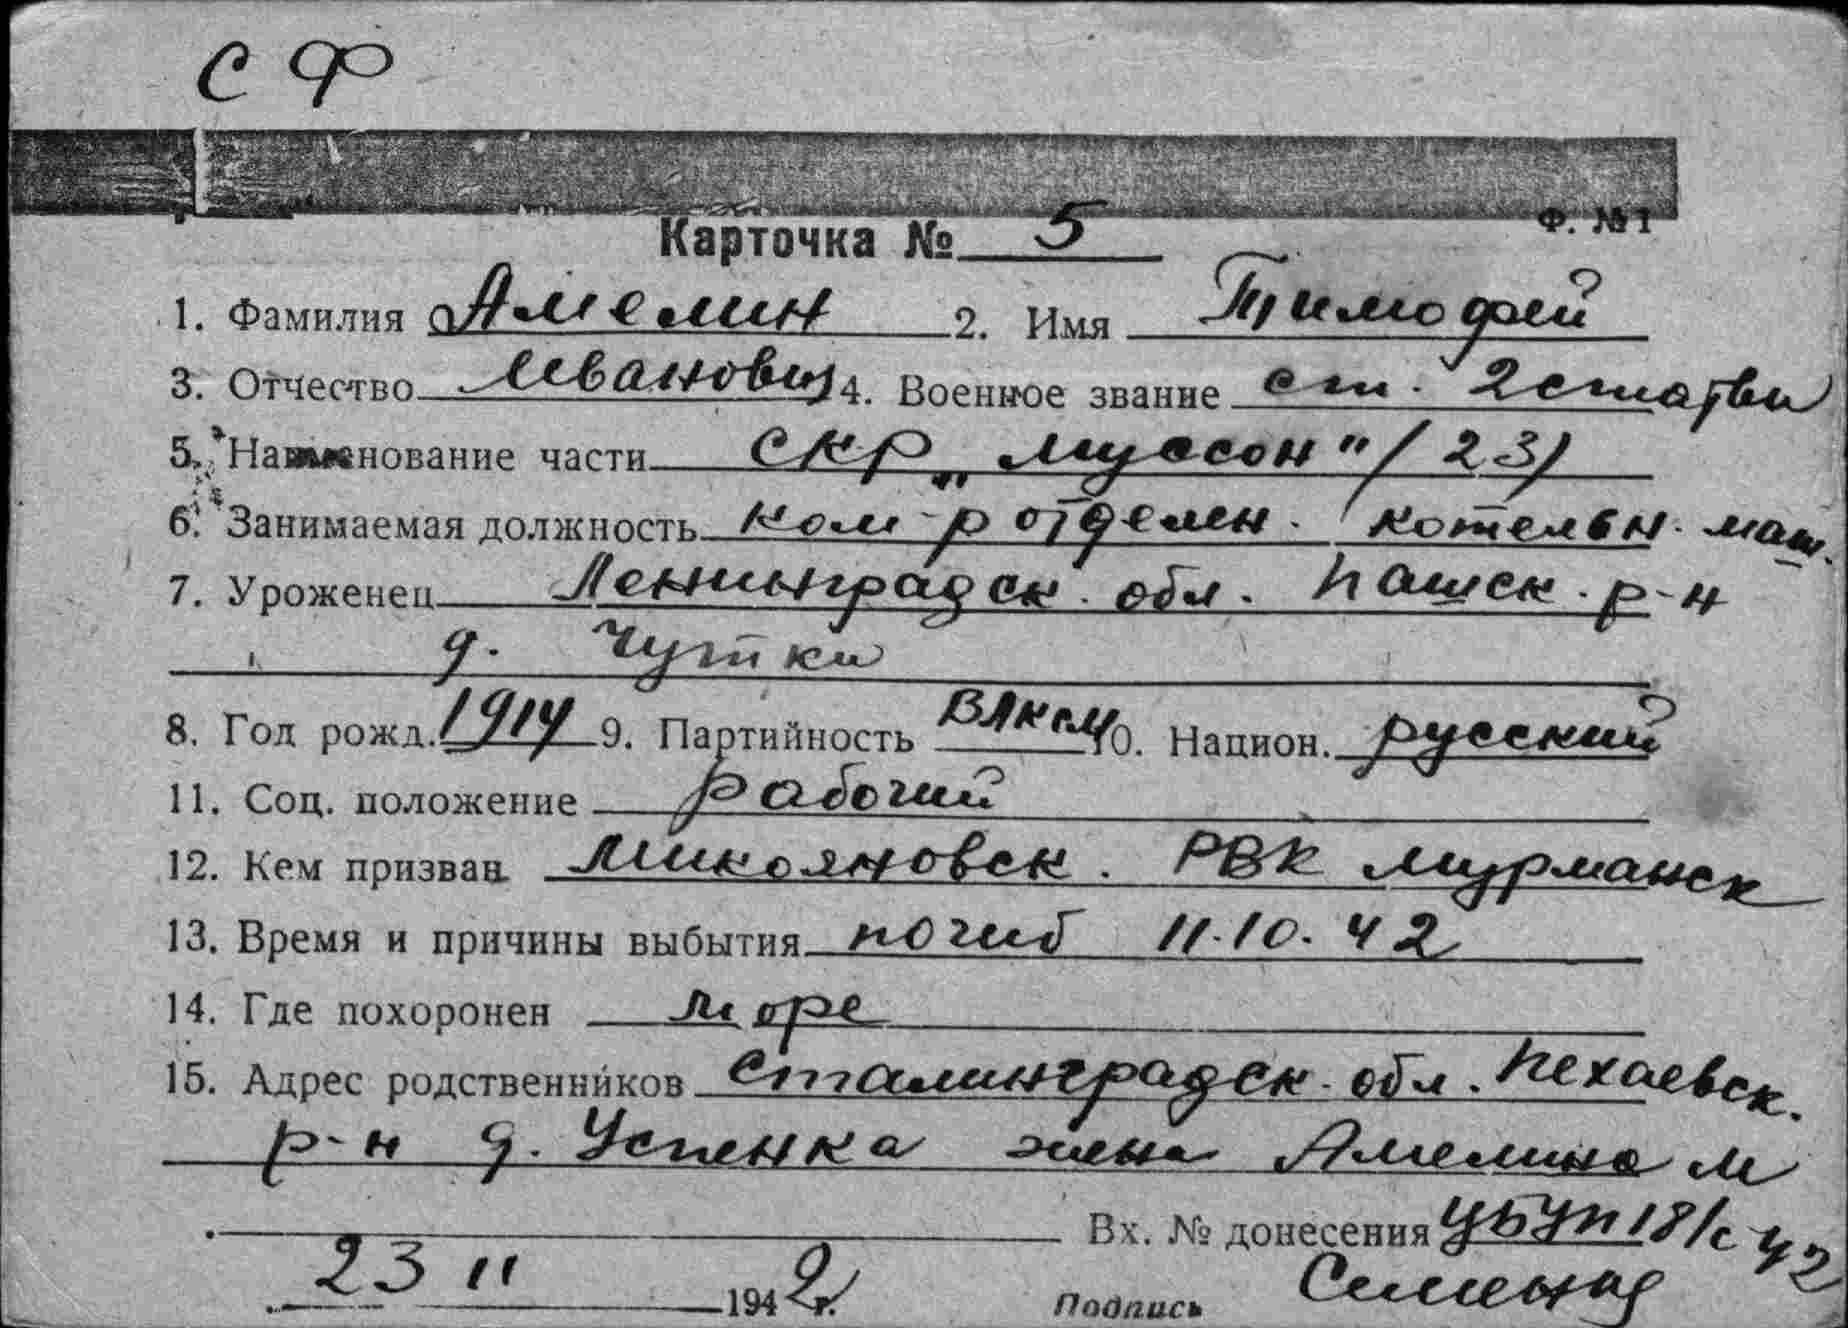 С Ф
Ф. №1
Карточка № 5
1. Фамилия Амелин 2. Имя Тимофей
3. Отчество Иванович 4. Военное звание ст. 2 статьи
5. Наименование части СКР „Муссон" (23)
6. Занимаемая должность ком-р отделен. котельн. маш.
7. Уроженец Ленинградск. обл. Пашск. р-н
д. Чутки
8. Год рожд. 1914 9. Партийность ВЛКСМ 10. Национ. русский
11. Соц. положение рабочий
12. Кем призван Микояновск. РВК Мурманск
13. Время и причины выбытия погиб 11.10.42
14. Где похоронен море
15. Адрес родственников Сталинградск. обл. Нехаевск.
р-н д. Успенка жена Амелина М
Вх. № донесения УБУП 18/с 42
23 11 1942 г. Подпись